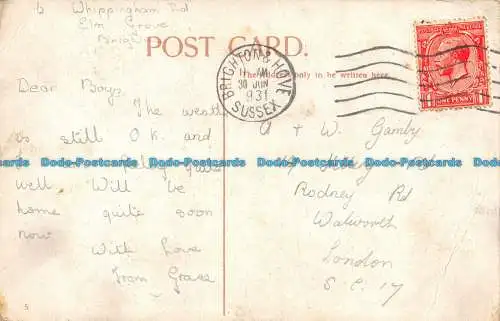 Whippingham Rd
Elm Grove
Brighton
POST CARD.
only to be written here.
BRIGHTON & HOVE
SUSSEX
30 JUN
1931
ONE PENNY
Dear Boys
The weath
is still O.K. and
well. Will be
home quite soon
now
With love
from Grace
A + W. Gamby
Rodney Rd
Walworth
London
S.E. 17
Dodo-Postcards Dodo-Postcards Dodo-Postcards Dodo-Postcards
5